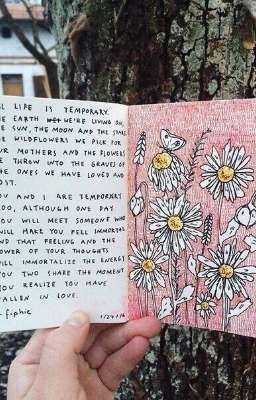 L LIFE IS TEMPORARY.
E EARTH WE'RE LIVING ON,
E SUN, THE MOON AND THE STARS
E WILDFLOWERS WE PICK FOR
UR MOTHERS AND THE FLOWERS
E THROW INTO THE GRAVES OF
HE ONES WE HAVE LOVED AND
OST.
OU AND I ARE TEMPORARY
OO, ALTHOUGH ONE DAY
OU WILL MEET SOMEONE WHO
ILL MAKE YOU FEEL IMMORTAL
ND THAT FEELING AND THE
OWER OF YOUR THOUGHTS
ILL IMMORTALIZE THE ENERGY
OU TWO SHARE THE MOMENT
OU REALIZE YOU HAVE
ALLEN IN LOVE.
- fiphie